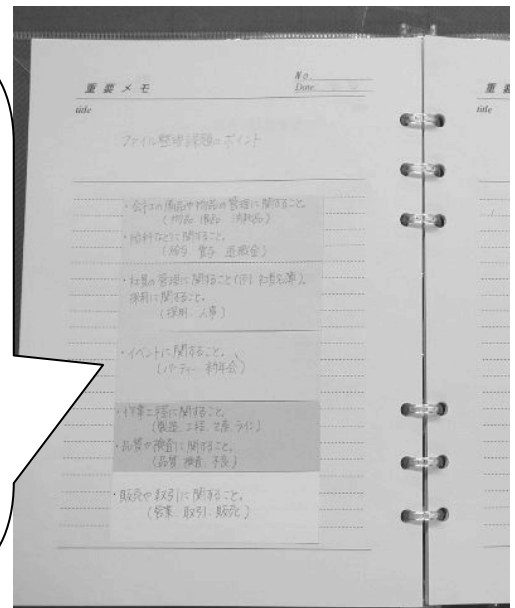 重要メモ
No.
Date
title
ファイル整理課題のポイント
・会社の備品や物品の管理に関すること。
(物品 備品 消耗品)
・給料などに関すること。
(給与 賞与 退職金)
・社員の管理に関すること(例)社員名簿)、
採用に関すること。
(採用、人事)
・イベントに関すること。
(パーティー 忘年会)
・作業工程に関すること。
(製造 工程 生産 ライン)
・品質や検査に関すること。
(品質 検査 不良)
・販売や取引に関すること。
(営業、取引、販売)
重要
title